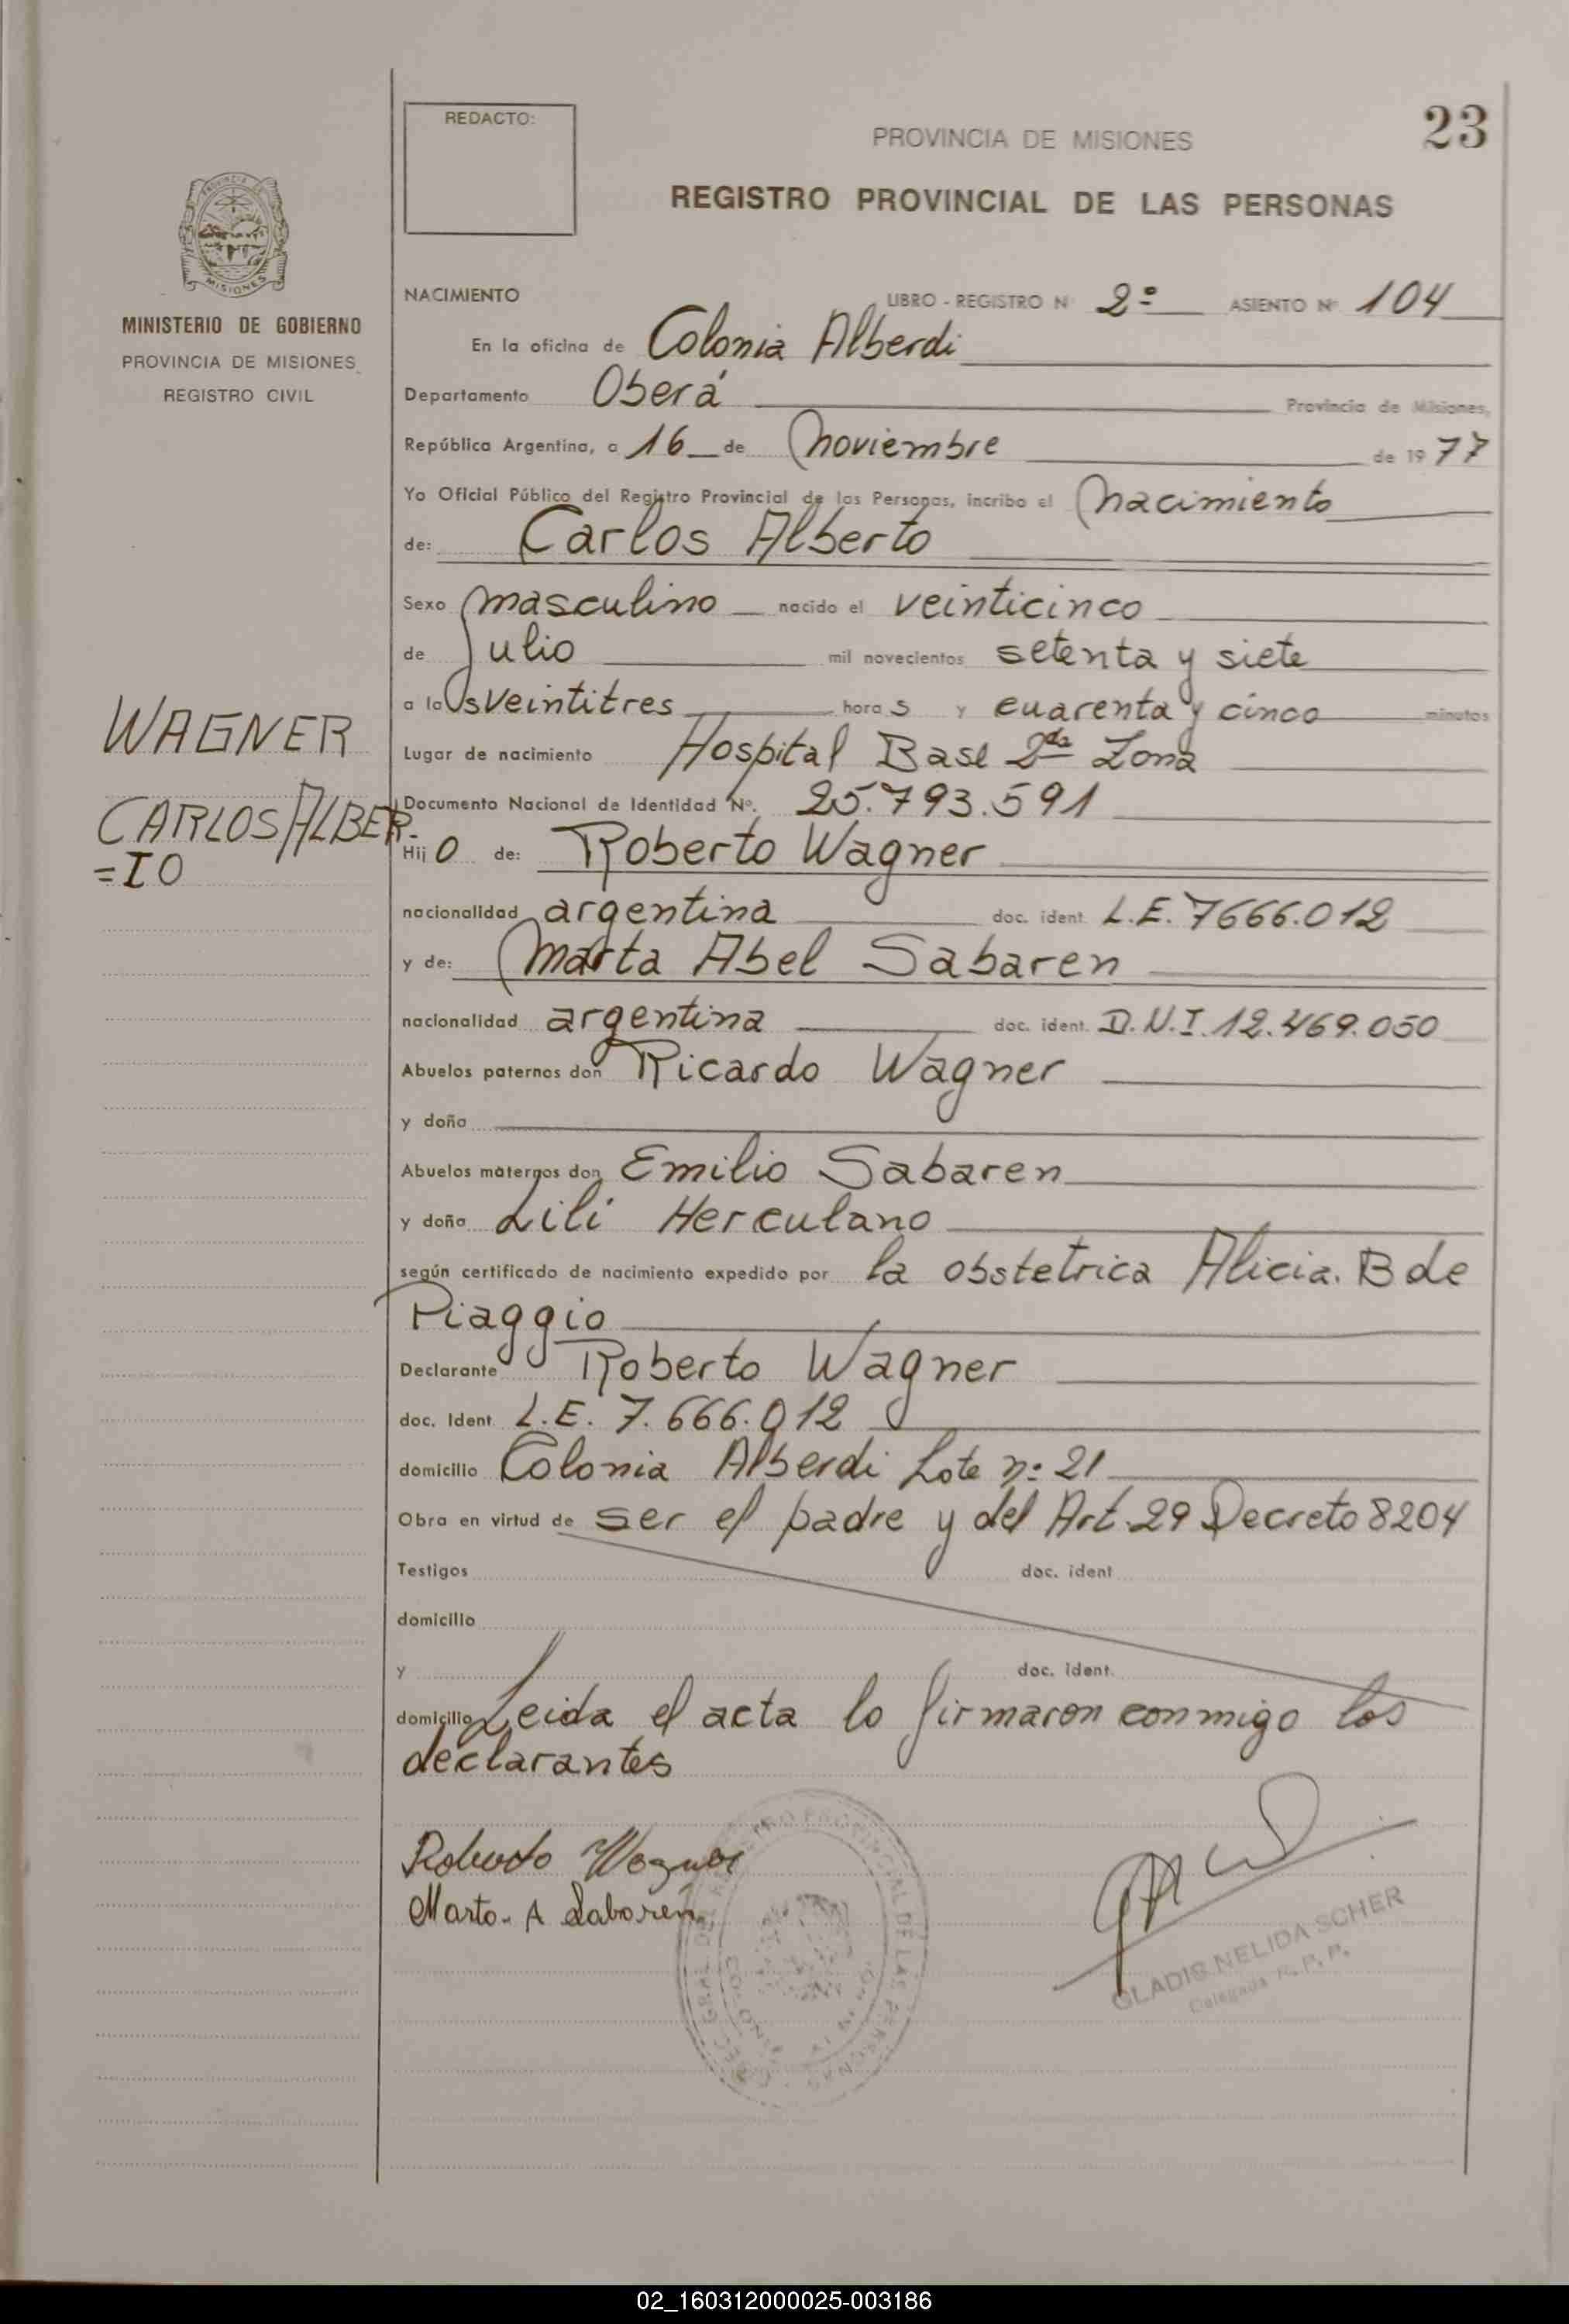 REDACTO:
PROVINCIA DE MISIONES
23
REGISTRO PROVINCIAL DE LAS PERSONAS
PROVINCIA DE
MISIONES
MINISTERIO DE GOBIERNO
PROVINCIA DE MISIONES
REGISTRO CIVIL
WAGNER
CARLOS ALBER-
=TO
NACIMIENTO LIBRO - REGISTRO Nº 2º ASIENTO Nº 104
En la oficina de Colonia Alberdi
Departamento Oberá Provincia de Misiones,
República Argentina, a 16 de Noviembre de 1977
Yo Oficial Público del Registro Provincial de las Personas, incribo el Nacimiento
de: Carlos Alberto
Sexo masculino nacido el veinticinco
de Julio mil novecientos setenta y siete
a las veintitres horas y cuarenta y cinco minutos
Lugar de nacimiento Hospital Base 2da Zona
Documento Nacional de Identidad Nº. 25.793.591
Hijo de: Roberto Wagner
nacionalidad argentina doc. ident. L.E. 7666.012
y de: Marta Abel Sabaren
nacionalidad argentina doc. ident. D.N.I. 12.469.050
Abuelos paternos don Ricardo Wagner
y doña
Abuelos maternos don Emilio Sabaren
y doña Lili Herculano
según certificado de nacimiento expedido por la obstetrica Alicia. B de
Piaggio
Declarante Roberto Wagner
doc. Ident. L.E. 7.666.012
domicilio Colonia Alberdi Lote nº 21
Obra en virtud de ser el padre y del Art. 29 Decreto 8204
Testigos doc. ident
domicilio
y doc. ident.
domicilio Leida el acta lo firmaron conmigo los
declarantes
Roberto Wagner
Marta. A Sabarén
REGISTRO PROVINCIAL DE LAS PERSONAS
GLADIS NELIDA SCHER
Delegada R. P. P.
02_160312000025-003186